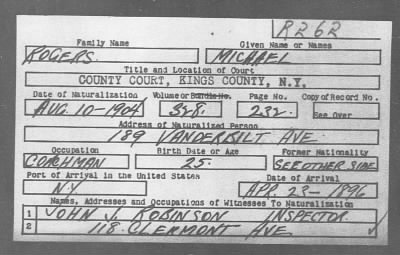 R262
Family Name Given Name or Names
ROGERS MICHAEL
Title and Location of Court
COUNTY COURT, KINGS COUNTY, N.Y.
Date of Naturalization Volume or Bundle No. Page No. Copy of Record No.
AUG. 10-1904 328. 232. See Over
Address of Naturalized Person
189 VANDERBILT AVE.
Occupation Birth Date or Age Former Nationality
COACHMAN 25. SEE OTHER SIDE
Port of Arrival in the United States Date of Arrival
N.Y APR. 23-1896
Names, Addresses and Occupations of Witnesses To Naturalization
1 JOHN J. ROBINSON INSPECTOR
2 118 CLERMONT AVE.